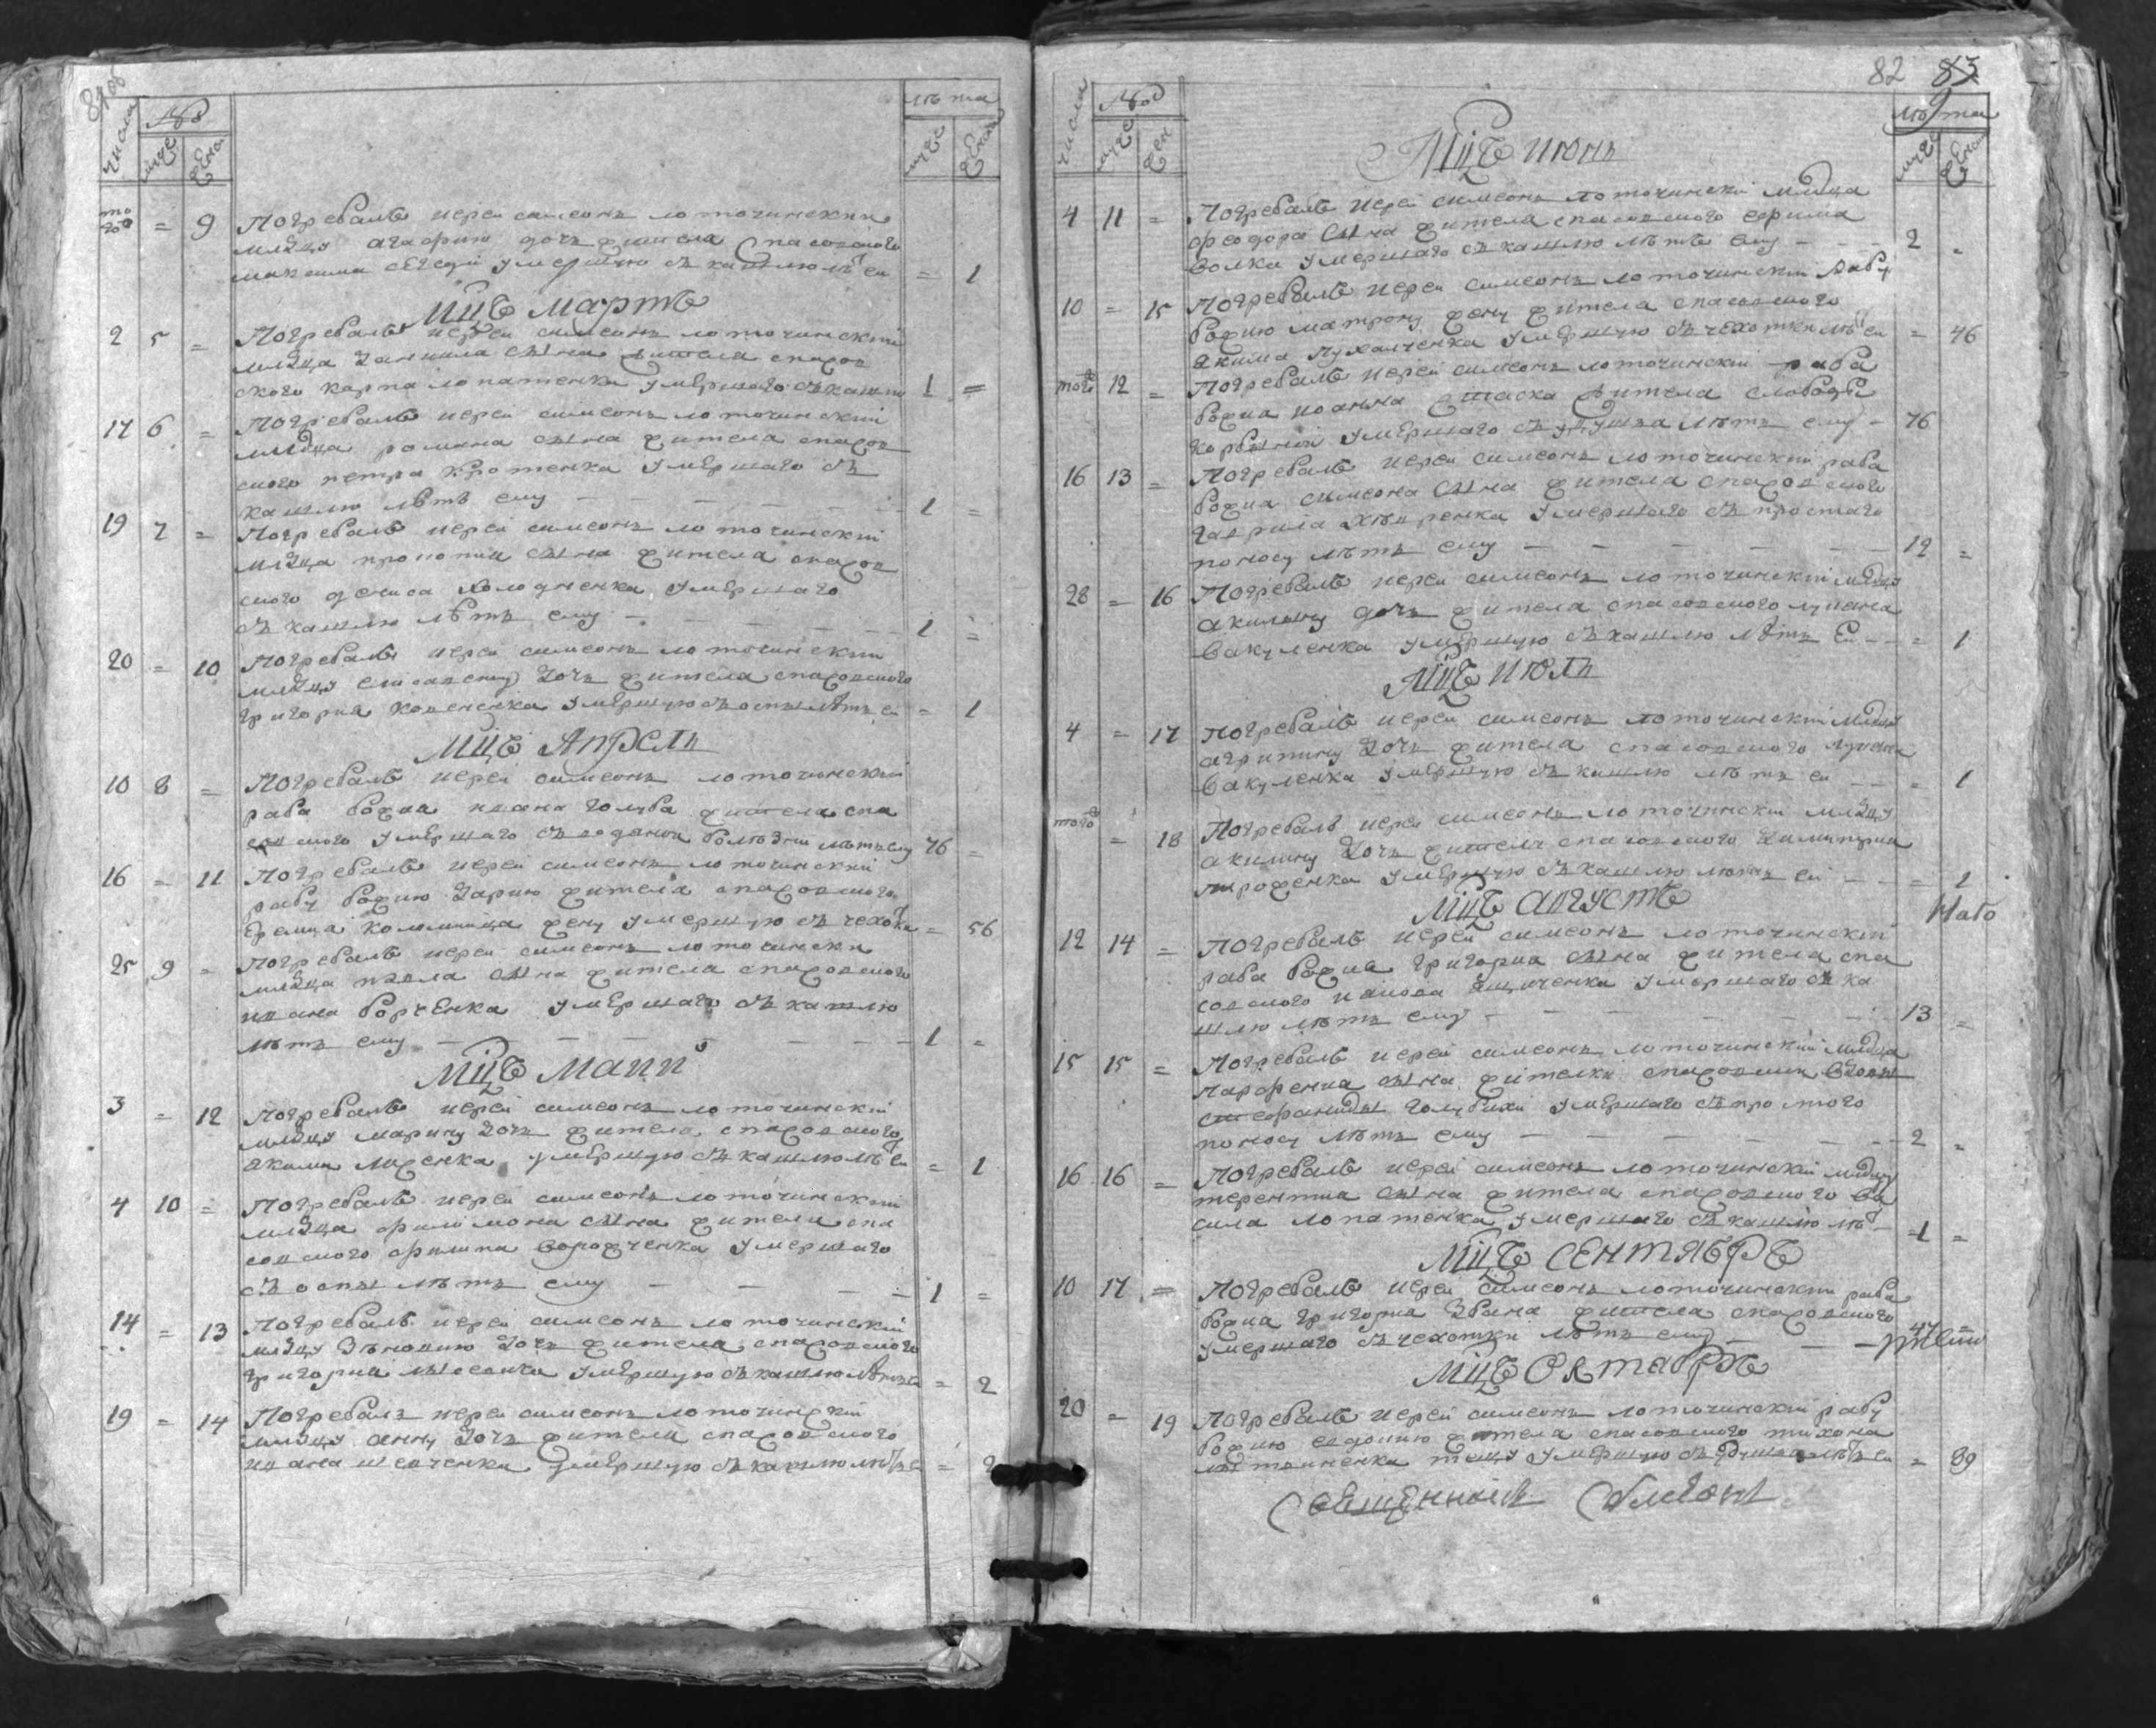 81об
числа № лѣта
муже женс муже женс
того = 9 Погребалъ иерей симеонъ лоточинский
млдцу агафию дочь жителя спасовского
максима умершую съ кашлю лѣтъ ей = 1
Мцъ Мартъ
2 5 = Погребалъ иерей симеонъ лоточинский
млдца даниила сына жителя спасов
ского карпа лопатенка умершаго съ кашлю 1 =
17 6 = Погребалъ иерей симеонъ лоточинский
млдца романа сына жителя спасов
ского петра кротенка умершаго съ
кашлю лѣтъ ему 1 =
19 7 = Погребалъ иерей симеонъ лоточинский
млдца прокопия сына жителя спасов
ского дениса холодненка умершаго
съ кашлю лѣтъ ему 1 =
20 = 10 Погребалъ иерей симеонъ лоточинский
млдцу елисавету дочь жителя спасовского
григория коваленка умершую съ оспы лѣтъ ей = 1
Мцъ Апрель
10 8 = Погребалъ иерей симеонъ лоточинский
раба божия иоана голуба жителя спа
совского умершаго съ водяной болѣзни лѣтъ ему 76 =
16 = 11 Погребалъ иерей симеонъ лоточинский
рабу божию дарию жителя спасовского
еремия коломийца жену умершую съ чехотки = 56
25 9 = Погребалъ иерей симеонъ лоточински
млдца павла сына жителя спасовского
ивана борченка умершаго съ кашлю
лѣтъ ему 1 =
Мцъ Маий
3 = 12 Погребалъ иерей симеонъ лоточинскій
млдцу марину дочь жителя спасовского
якима умершую съ кашлю лѣтъ ей = 1
4 10 = Погребалъ иерей симеонъ лоточинский
млдца филимона сына жителя спа
совского филипа умершаго
съ оспы лѣтъ ему 1 =
14 = 13 Погребалъ иерей симеонъ лоточинский
млдцу зѣновию дочь жителя спасовского
григория умершую съ кашлю лѣтъ ей = 2
19 = 14 Погребалъ иерей симеонъ лоточинскій
млдцу анну дочь жителя спасовского
ивана шевченка умершую съ кашлю лѣтъ ей = 2
82 83
числа № лѣта
муже жен муже женс
Мцъ июнь
4 11 = Погребалъ иерей симеонъ лоточинскій млдца
феодора сына жителя спасовского ефима
волка умершаго съ кашлю лѣтъ ему 2 =
10 = 15 Погребалъ иерей симеонъ лоточинский рабу
божию матрону жену жителя спасовского
якима пухальченка умершую съ чехотки лѣтъ ей = 46
того 12 = Погребалъ иерей симеонъ лоточинскій раба
божия иоанна жителя слободы
умершаго съ лѣтъ ему 76
16 13 = Погребалъ иерей симеонъ лоточинский раба
божия симеона сына жителя спасовского
гаврила умершаго съ простаго
поносу лѣтъ ему 12 =
28 = 16 Погребалъ иерей симеонъ лоточинскій млдцу
акилину дочь жителя спасовского лукяна
вакуленка умершую съ кашлю лѣтъ ей = 1
Мцъ июль
4 = 17 Погребалъ иерей симеонъ лоточинскій млдцу
агрипину дочь жителя спасовского лукяна
вакуленка умершую съ кашлю лѣтъ ей = 1
того = 18 Погребалъ иерей симеонъ лоточинский млдцу
акилину дочь жителя спасовского димитрия
умершую съ кашлю лѣтъ ей = 1
Мцъ августъ
12 14 = Погребалъ иерей симеонъ лоточинский
раба божия григория сына жителя спа
совского иакова умершаго съ ка
шлю лѣтъ ему 13 =
15 15 = Погребалъ иерей симеонъ лоточинский млдца
парфения сына жителки спасовской вдовы
стефаниды голубихи умершаго съ простого
поносу лѣтъ ему 2 =
16 16 = Погребалъ иерей симеонъ лоточинскій млдцу
терентия сына жителя спасовского ва
сила лопатенка умершаго съ кашлю лѣтъ 1 =
Мцъ Сентябръ
10 17 = Погребалъ иерей симеонъ лоточинский раба
божия григория жителя спасовского
умершаго съ чехотки лѣтъ ему 47 =
Мцъ Октабръ
20 = 19 Погребалъ иерей симеонъ лоточинский рабу
божию евдокию жителя спасовского тихона
тещу умершую съ лѣтъ ей = 89
Священникъ Симеонъ